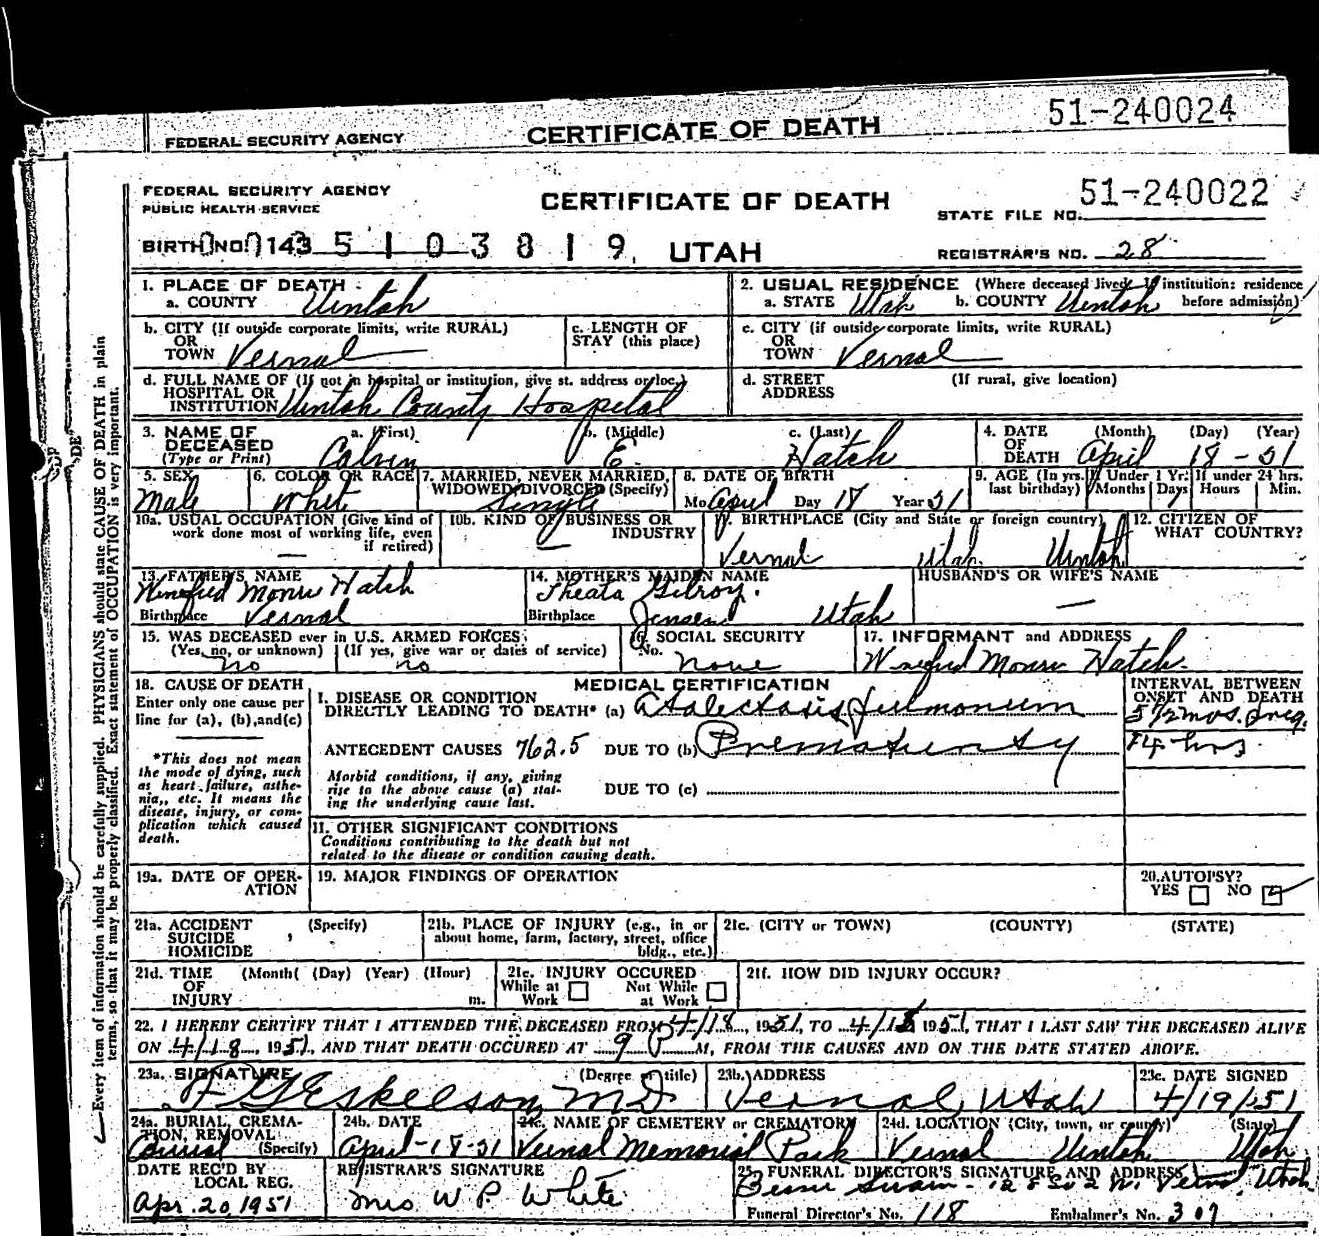 51-240024
FEDERAL SECURITY AGENCY CERTIFICATE OF DEATH
FEDERAL SECURITY AGENCY
PUBLIC HEALTH SERVICE
CERTIFICATE OF DEATH
51-240022
STATE FILE NO.
BIRTH NO. 143 5 1 0 3 8 1 9, UTAH
REGISTRAR'S NO. 28
1. PLACE OF DEATH
a. COUNTY Uintah
2. USUAL RESIDENCE (Where deceased lived. If institution: residence before admission)
a. STATE Utah b. COUNTY Uintah
b. CITY (If outside corporate limits, write RURAL)
OR
TOWN Vernal
c. LENGTH OF
STAY (this place)
c. CITY (if outside corporate limits, write RURAL)
OR
TOWN Vernal
d. FULL NAME OF (If not in hospital or institution, give st. address or loc.)
HOSPITAL OR
INSTITUTION Uintah County Hospital
d. STREET (If rural, give location)
ADDRESS
3. NAME OF
DECEASED
(Type or Print)
a. (First) Calvin
b. (Middle) E.
c. (Last) Hatch
4. DATE OF DEATH (Month) (Day) (Year)
April 18-51
5. SEX
Male
6. COLOR OR RACE
White
7. MARRIED, NEVER MARRIED,
WIDOWED, DIVORCED (Specify)
Single
8. DATE OF BIRTH
Mo April Day 18 Year 51
9. AGE (In yrs. last birthday)
If Under 1 Yr.
Months Days
If under 24 hrs.
Hours Min.
10a. USUAL OCCUPATION (Give kind of
work done most of working life, even
if retired)
—
10b. KIND OF BUSINESS OR
INDUSTRY
—
11. BIRTHPLACE (City and State or foreign country)
Vernal Utah Uintah
12. CITIZEN OF
WHAT COUNTRY?
13. FATHER'S NAME
Winefred Monro Hatch
Birthplace Vernal
14. MOTHER'S MAIDEN NAME
Theata Gilroy.
Birthplace Jensen Utah
HUSBAND'S OR WIFE'S NAME
—
15. WAS DECEASED ever in U.S. ARMED FORCES
(Yes, no, or unknown) (If yes, give war or dates of service)
no no
16. SOCIAL SECURITY
No.
none
17. INFORMANT and ADDRESS
Winefred Monro Hatch.
18. CAUSE OF DEATH
Enter only one cause per
line for (a), (b), and (c)
*This does not mean
the mode of dying, such
as heart failure, asthe-
nia, etc. It means the
disease, injury, or com-
plication which caused
death.
MEDICAL CERTIFICATION
I. DISEASE OR CONDITION
DIRECTLY LEADING TO DEATH* (a) Atalectasis Pulmonum
ANTECEDENT CAUSES 762.5 DUE TO (b) Prematurity
Morbid conditions, if any, giving
rise to the above cause (a) stat-
ing the underlying cause last.
DUE TO (c)
INTERVAL BETWEEN
ONSET AND DEATH
5 1/2 mos. preg.
14 hrs
II. OTHER SIGNIFICANT CONDITIONS
Conditions contributing to the death but not
related to the disease or condition causing death.
19a. DATE OF OPER-
ATION
19. MAJOR FINDINGS OF OPERATION
20. AUTOPSY?
YES NO
21a. ACCIDENT (Specify)
SUICIDE
HOMICIDE
21b. PLACE OF INJURY (e.g., in or
about home, farm, factory, street, office
bldg., etc.)
21c. (CITY or TOWN) (COUNTY) (STATE)
21d. TIME (Month) (Day) (Year) (Hour)
OF
INJURY m.
21e. INJURY OCCURED
While at Work Not While at Work
21f. HOW DID INJURY OCCUR?
22. I HEREBY CERTIFY THAT I ATTENDED THE DECEASED FROM 4/18, 1951, TO 4/18 1951, THAT I LAST SAW THE DECEASED ALIVE
ON 4/18, 1951, AND THAT DEATH OCCURED AT 9 P M, FROM THE CAUSES AND ON THE DATE STATED ABOVE.
23a. SIGNATURE (Degree or title)
Eskelson MD
23b. ADDRESS
Vernal, Utah
23c. DATE SIGNED
4/19/51
24a. BURIAL, CREMA-
TION, REMOVAL
(Specify)
Burial
24b. DATE
April-18-51
24c. NAME OF CEMETERY or CREMATORY
Vernal Memorial Park
24d. LOCATION (City, town, or county) (State)
Vernal Uintah Utah
DATE REC'D BY
LOCAL REG.
Apr. 20, 1951
REGISTRAR'S SIGNATURE
Mrs W P White
25. FUNERAL DIRECTOR'S SIGNATURE AND ADDRESS
Swain Utah
Funeral Director's No. 118 Embalmer's No. 307
Every item of information should be carefully supplied. PHYSICIANS should state CAUSE OF DEATH in plain
terms, so that it may be properly classified. Exact statement of OCCUPATION is very important.